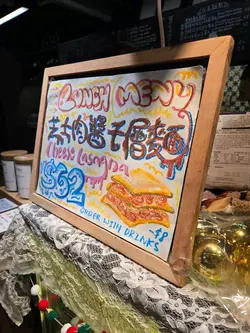 LUNCH MENU
芝士肉醬千層麵
Cheese Lasagna
$62
ORDER WITH DRINKS
-$8